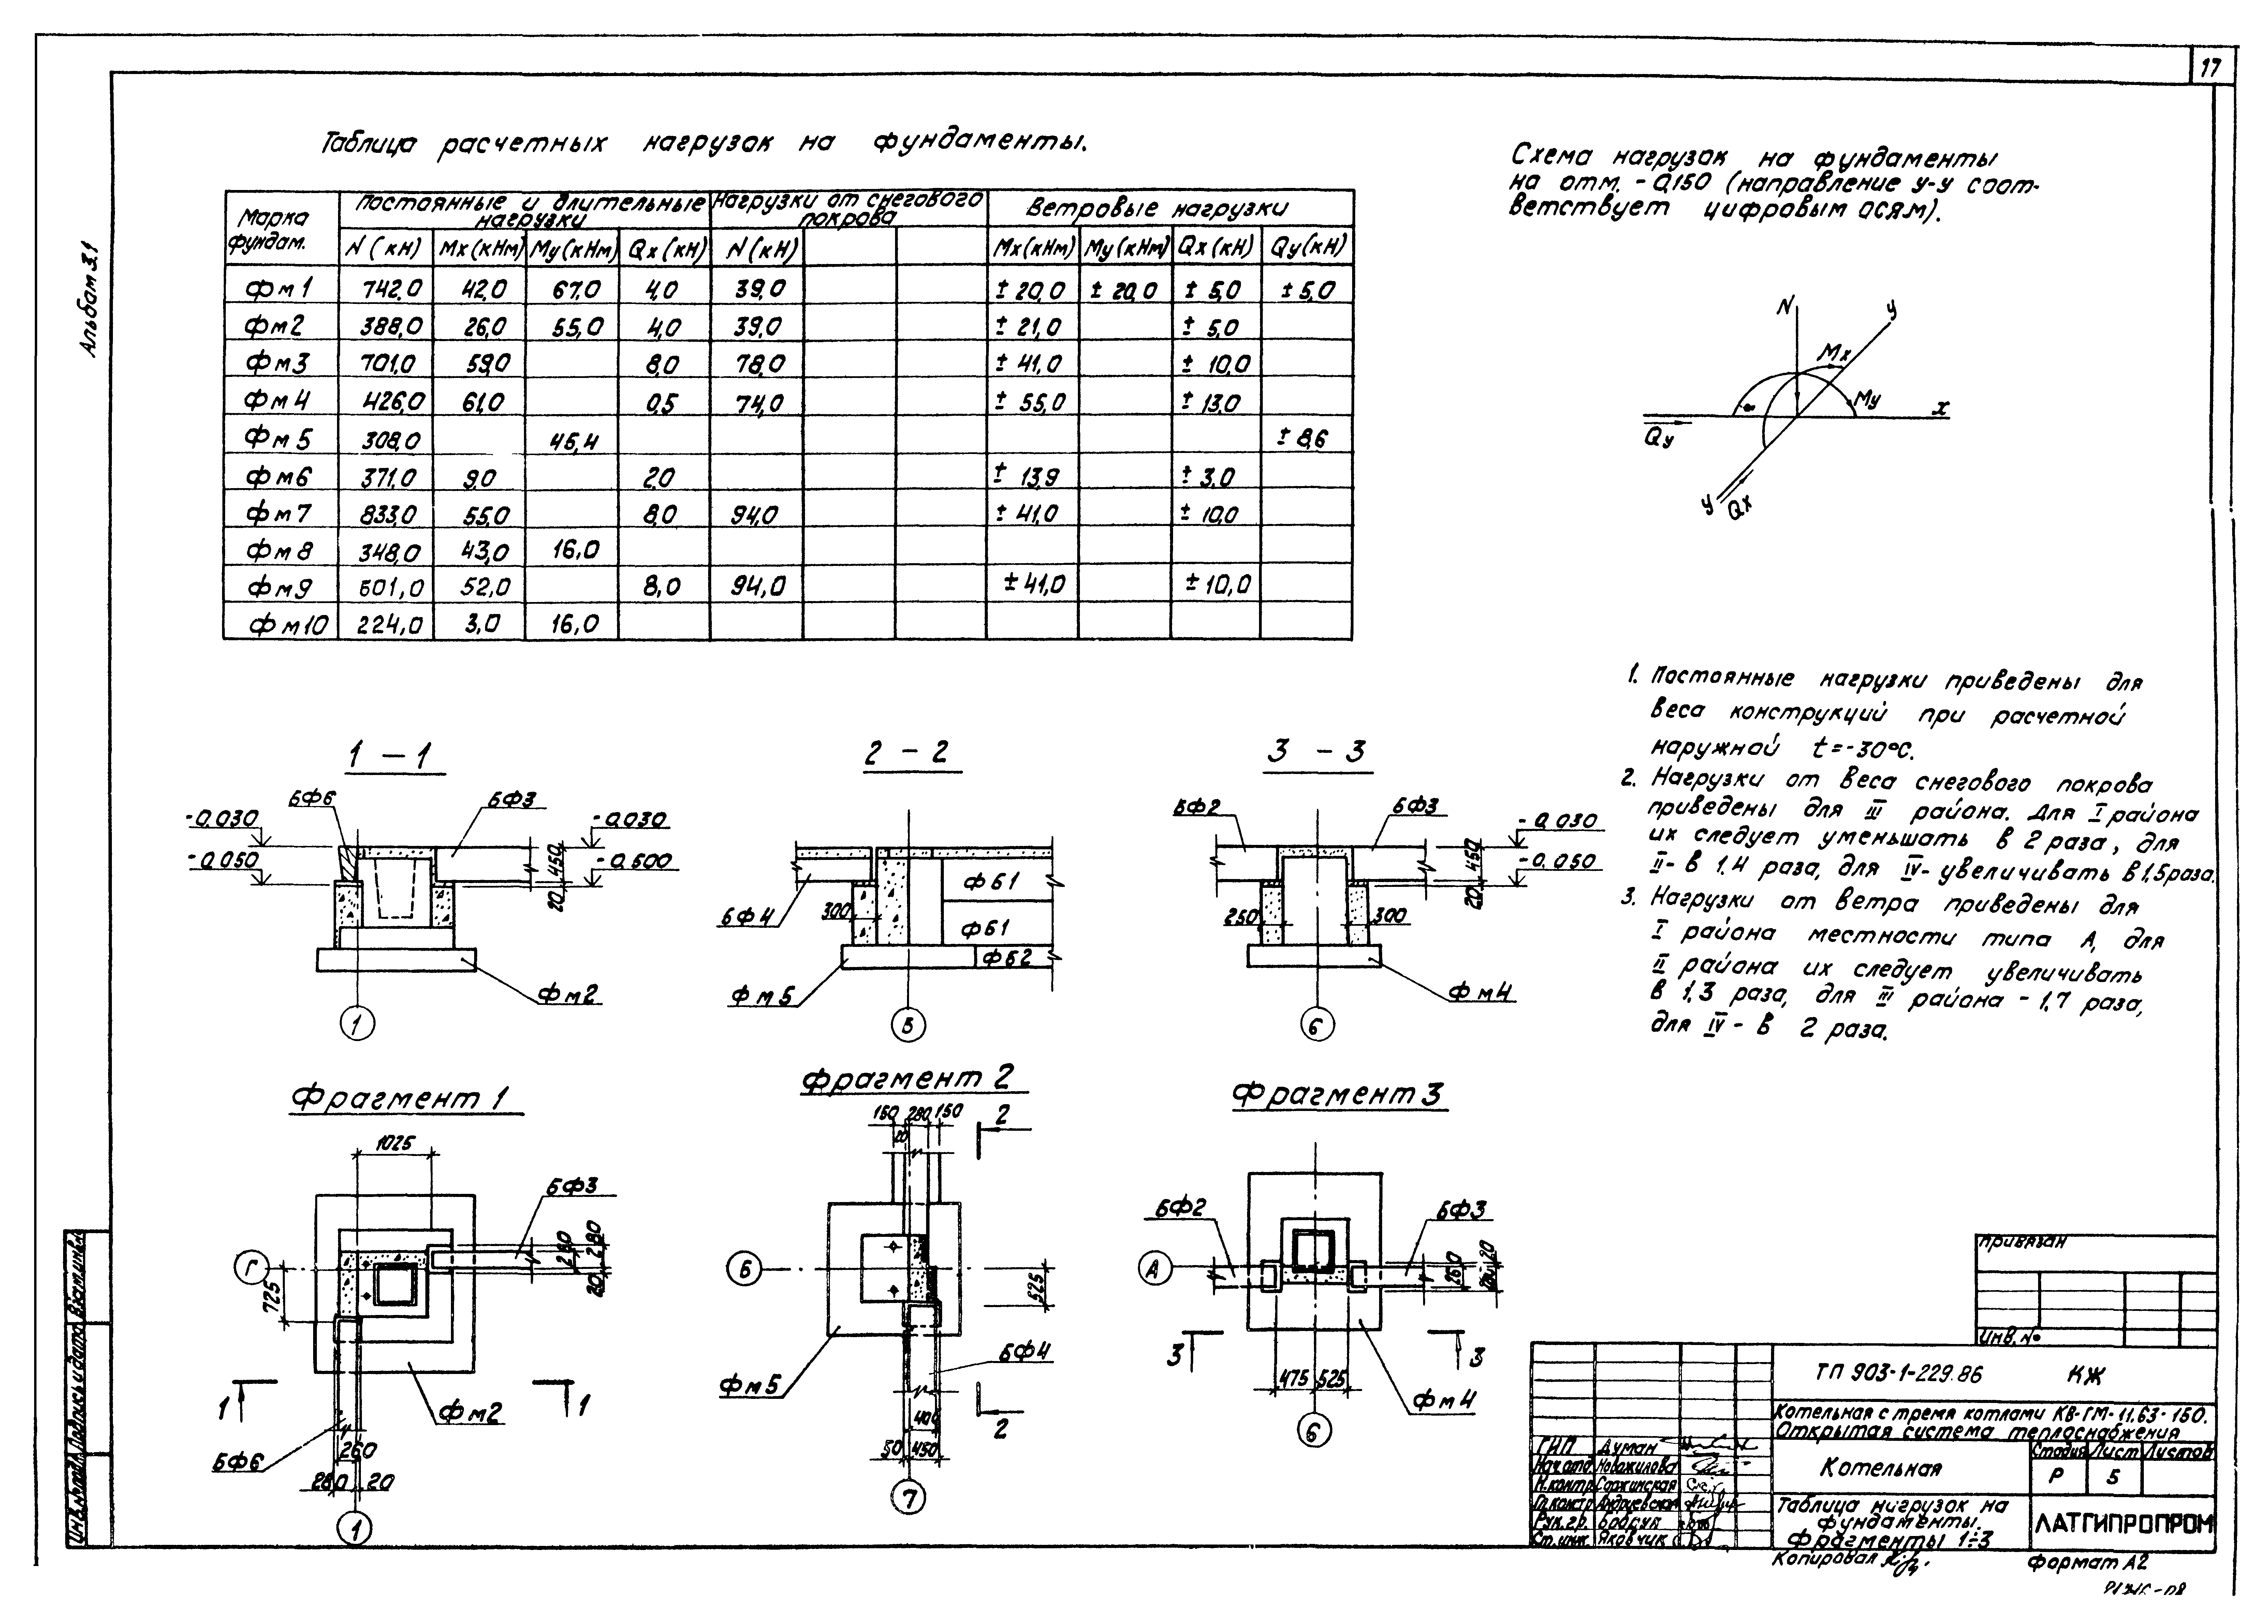 17
Альбом 3.1
Таблица расчетных нагрузок на фундаменты.
Марка фундам. Постоянные и длительные нагрузки Нагрузки от снегового покрова Ветровые нагрузки
N (кН) Mx (кНм) My (кНм) Qx (кН) N (кН) Mx (кНм) My (кНм) Qx (кН) Qy (кН)
Фм1 742,0 42,0 67,0 4,0 39,0 ± 20,0 ± 20,0 ± 5,0 ± 5,0
Фм2 388,0 26,0 55,0 4,0 39,0 ± 21,0 ± 5,0
Фм3 701,0 59,0 8,0 78,0 ± 41,0 ± 10,0
Фм4 426,0 61,0 0,5 74,0 ± 55,0 ± 13,0
Фм5 308,0 45,4 ± 8,6
Фм6 371,0 9,0 2,0 ± 13,9 ± 3,0
Фм7 833,0 55,0 8,0 94,0 ± 41,0 ± 10,0
Фм8 348,0 43,0 16,0
Фм9 601,0 52,0 8,0 94,0 ± 41,0 ± 10,0
Фм10 224,0 3,0 16,0
Схема нагрузок на фундаменты
на отм. -0,150 (направление у-у соот-
ветствует цифровым осям).
N
у
Mx
My
x
Qy
у
Qx
1. Постоянные нагрузки приведены для
веса конструкций при расчетной
наружной t=-30°С.
2. Нагрузки от веса снегового покрова
приведены для III района. Для I района
их следует уменьшать в 2 раза, для
II- в 1,4 раза, для IV- увеличивать в 1,5 раза.
3. Нагрузки от ветра приведены для
I района местности типа А, для
II района их следует увеличивать
в 1,3 раза, для III района - 1,7 раза,
для IV - в 2 раза.
1 - 1
БФ6
БФ3
-0,030
-0,030
-0,050
-0,500
450
20
Фм2
1
2 - 2
ФБ1
БФ4
300
ФБ1
ФБ2
Фм5
Б
3 - 3
БФ2
БФ3
-0,030
450
-0,050
20
250
300
Фм4
6
Фрагмент 1
1025
БФ3
280
260
20
Г
725
1
1
Фм2
260
БФ6
280
20
1
Фрагмент 2
150 280 150
20
2
Б
525
БФ4
Фм5
400
2
50 450
7
Фрагмент 3
БФ2
БФ3
А
260
20
3
3
475 525
Фм4
6
Привязан
Инв. №
ТП 903-1-229.86 КЖ
Котельная с тремя котлами КВ-ГМ-11,63-150.
Открытая система теплоснабжения
Котельная
Стадия Лист Листов
Р 5
Таблица нагрузок на
фундаменты.
Фрагменты 1÷3
ЛАТГИПРОПРОМ
ГИП Думан
Нач.отд. Новожилова
Н.контр.
Гл.констр. Андриевская
Рук.гр.
Ст.инж. Яковчик
Копировал
Формат А2
Инв.№ подл.
Подпись и дата
Взам.инв.№